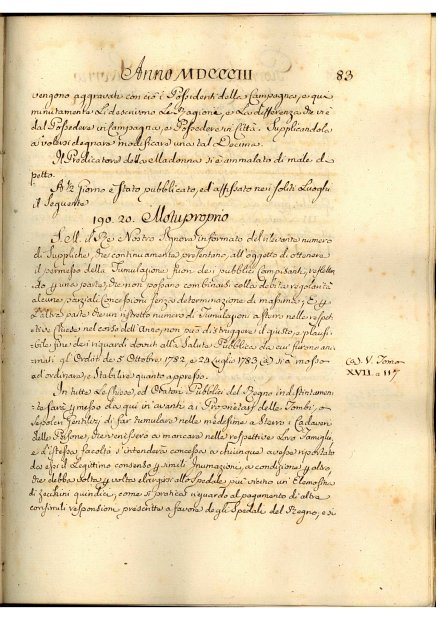 Anno MDCCCIII 83
vengono aggravati con ciò i Possidenti della Campagna, e qua
minutamente Li descrivono Le Ragione, e La differenza che vi è
dal Possedere in Campagna, e Possedere in Città. Supplicandola
a volersi degnare modificare una tal Decima.
Il Predicatore della Madonna si è ammalato di male di
petto.
A 12 Giorno è stato pubblicato, ed affissato nei soliti Luoghi
il seguente
190. 20. Motuproprio
S. M. il Re Nostro Signore informato del rilevante numero
di Suppliche, che continuamente presentano, all'oggetto di ottenere
il permesso della Tumulazione fuori dei pubblici Campisanti, refletten
do p una parte, che non possano combinarsi colla debita regolarità
alcune parziali Concessioni senza determinazione di massima; E p
l'altra parte che un ristretto numero di Tumulazioni a sterro nelle respet
tive Chiese nel corso dell'Anno, non può distruggere il giusto, e plausi
bile fine dei riguardi dovuti alla Salute Pubblica da cui furono ani
mati gl'Ordini de 5 Ottobre 1782. e 2 Luglio 1783 (a) si è mosso
ad ordinare, e stabilire quanto appresso.
(a). V. Tomo
XVII. a 117
In tutte Le Chiese, ed Oratori Pubblici del Regno indistintamen
te sarà p messo da qui in avanti ai Proprietarj delle Tombe, o
Sepolcri Gentilizj di far tumulare nelle medesime a Sterro i Cadaveri
delle Persone, che venissero a mancare nelle respettive Loro Famiglie,
e L'istessa facoltà s'intenderà concessa a chiunque avesse riportato
da essi il Legittimo consenso p simili Inumazioni, a condizione p altro,
che debba volta p volta elargirsi allo Spedale più vicino un'Elemosina
di zecchini quindici, come si pratica riguardo al pagamento di altre
consimili responsioni prescritte a favore degli Spedali del Regno, e si